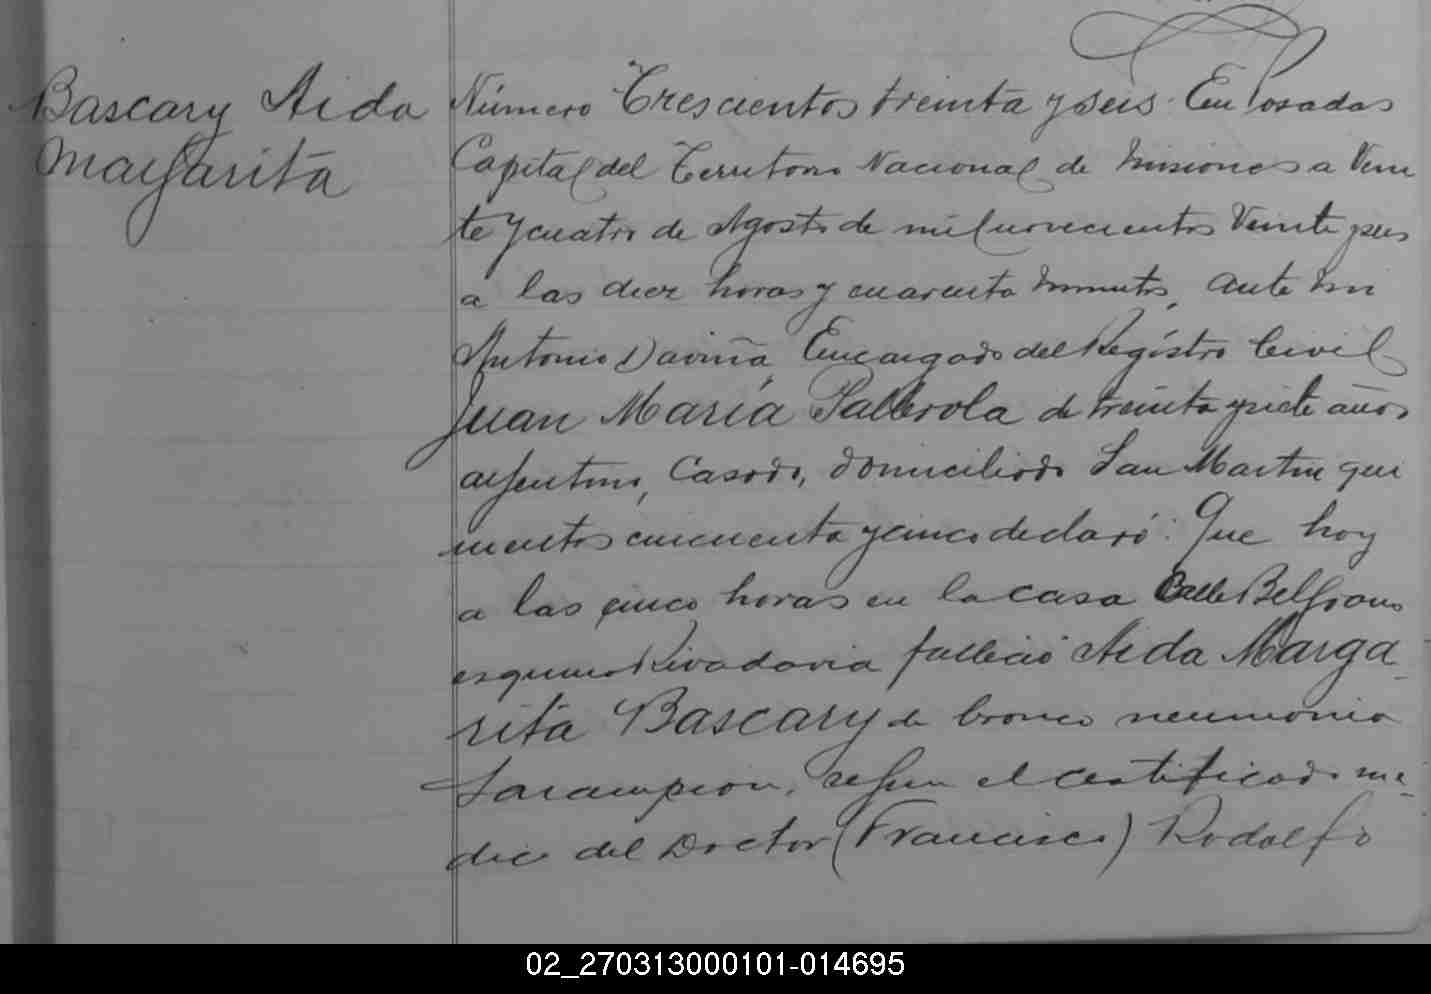 Bascary Aida
Margarita
Número Trescientos treinta y seis. En Posadas
Capital del Territorio Nacional de Misiones a Vein
te y cuatro de Agosto de mil novecientos Veinte y seis
a las diez horas y cuarenta minutos, ante mi
Antonio Daviña Encargado del Registro Civil
Juan María Pallerola de treinta y siete años
argentino, Casado, domiciliado San Martin qui
nientos cincuenta y cinco declaró: Que hoy
a las cinco horas en la casa Calle Belgrano
esquina Rivadavia falleció Aida Marga-
rita Bascary de bronco neumonia
Sarampion, segun el certificado me-
dico del Doctor (Francisco) Rodolfo
02_270313000101-014695